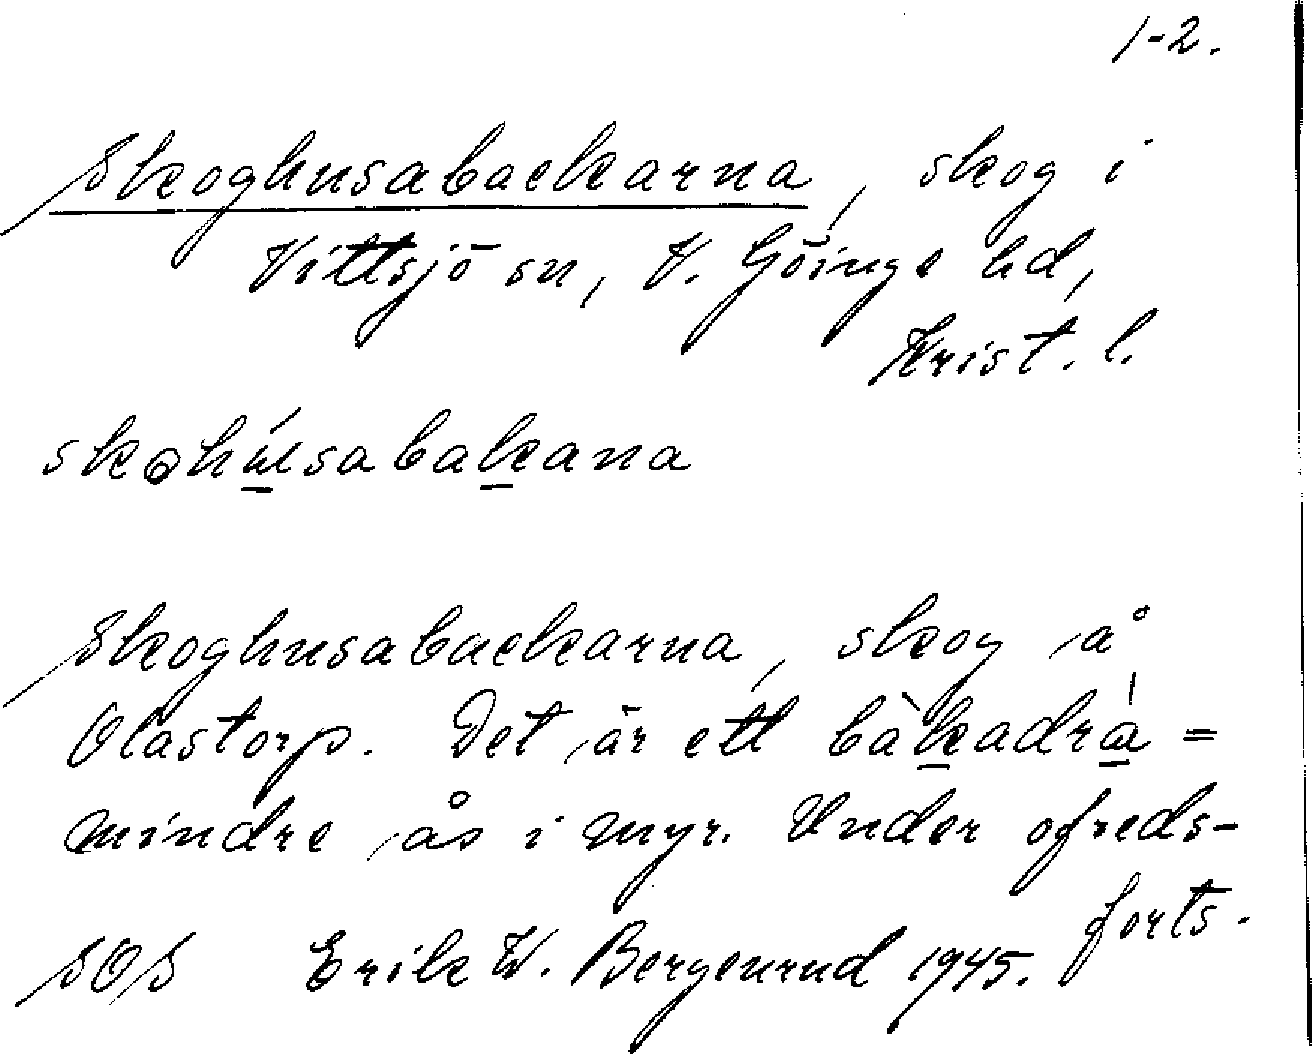 1-2.
Skoghusabackarna, skog i
Vittsjö sn, V. Göinge hd,
Krist. l.
skohúsabakana
Skoghusabackarna, skog å
Olastorp. Det är ett bàkadrá =
mindre ås i myr. Under ofreds-
forts.
SOS Erik W. Bergenrud 1945.